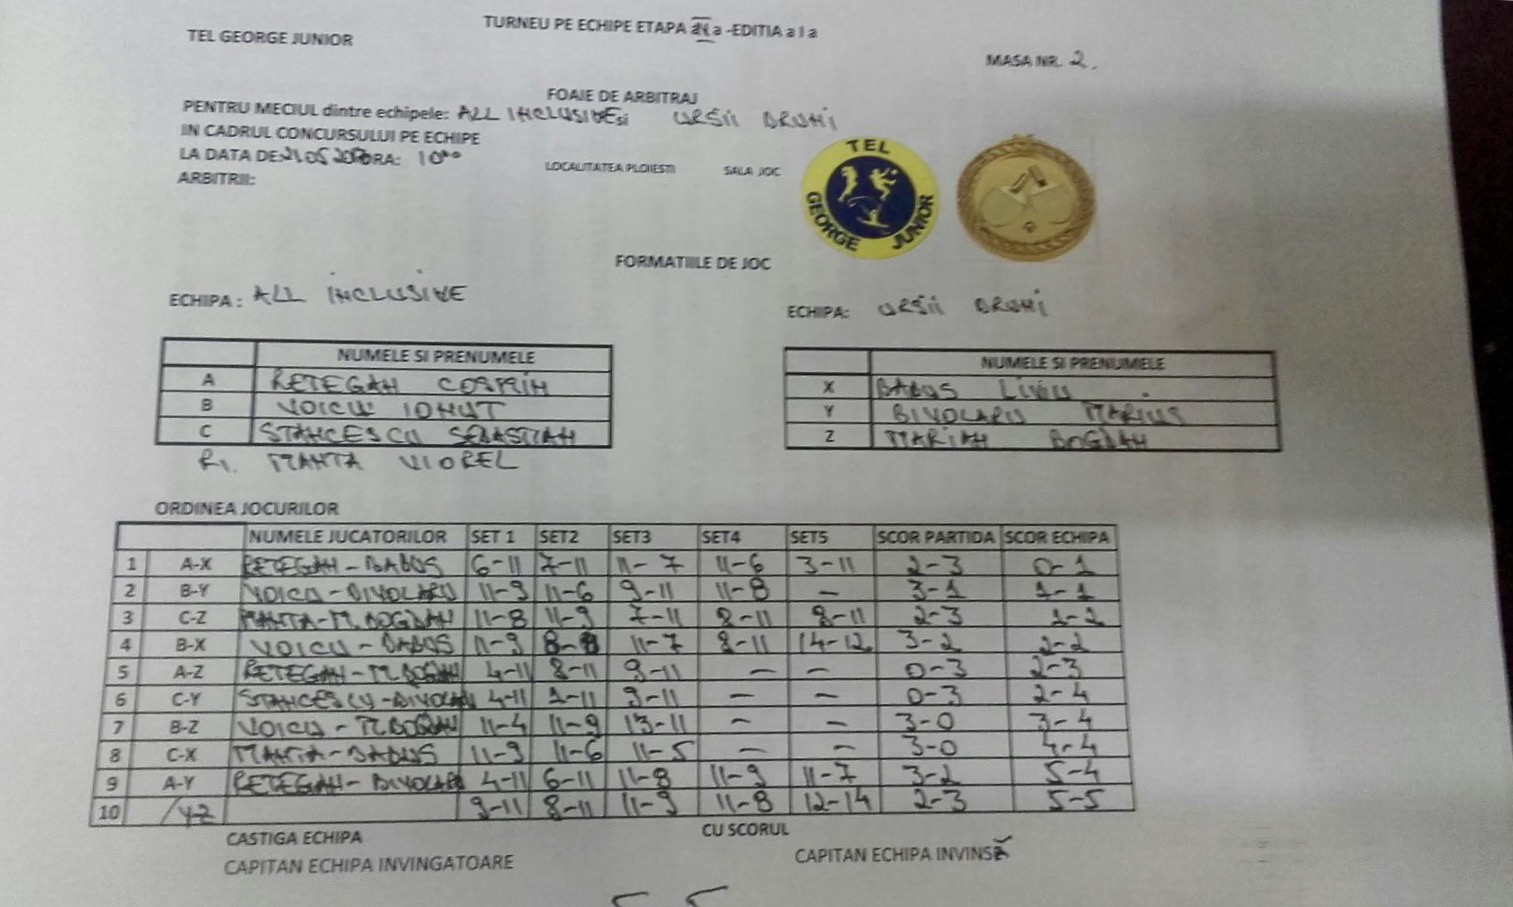 TURNEU PE ECHIPE ETAPA a a -EDITIA a I a
TEL GEORGE JUNIOR
MASA NR. 2.
FOAIE DE ARBITRAJ
PENTRU MECIUL dintre echipele: ALL INCLUSIVE si URSII BRUNI
IN CADRUL CONCURSULUI PE ECHIPE
LA DATA DE 21 05 ORA: 10⁰⁰ LOCALITATEA PLOIESTI SALA JOC
ARBITRII:
TEL
GEORGE JUNIOR
FORMATIILE DE JOC
ECHIPA: ALL INCLUSIVE
ECHIPA: URSII BRUNI
NUMELE SI PRENUMELE
A RETEGAN COSMIN
B VOICU IONUT
C STANCESCU SEBASTIAN
R1. MANTA VIOREL
NUMELE SI PRENUMELE
X BABUS LIVIU
Y BIVOLARU MARIUS
Z MARIAN BOGDAN
ORDINEA JOCURILOR
NUMELE JUCATORILOR SET 1 SET2 SET3 SET4 SET5 SCOR PARTIDA SCOR ECHIPA
1 A-X RETEGAN-BABUS 6-11 7-11 11-7 11-6 3-11 2-3 0-1
2 B-Y VOICU-BIVOLARU 11-9 11-6 9-11 11-8 - 3-1 1-1
3 C-Z MANTA-M.BOGDAN 11-8 11-9 7-11 8-11 8-11 2-3 1-2
4 B-X VOICU-BABUS 11-9 8- 11-7 8-11 14-12 3-2 2-2
5 A-Z RETEGAN-M.BOGDAN 4-11 8-11 9-11 - - 0-3 2-3
6 C-Y STANCESCU-BIVOLARU 4-11 1-11 9-11 - - 0-3 2-4
7 B-Z VOICU-M.BOGDAN 11-4 11-9 13-11 - - 3-0 3-4
8 C-X MANTA-BABUS 11-9 11-6 11-5 - - 3-0 4-4
9 A-Y RETEGAN-BIVOLARU 4-11 6-11 11-8 11-9 11-7 3-2 5-4
10 /YZ 9-11 8-11 11-9 11-8 12-14 2-3 5-5
CASTIGA ECHIPA CU SCORUL
CAPITAN ECHIPA INVINGATOARE CAPITAN ECHIPA INVINSĂ